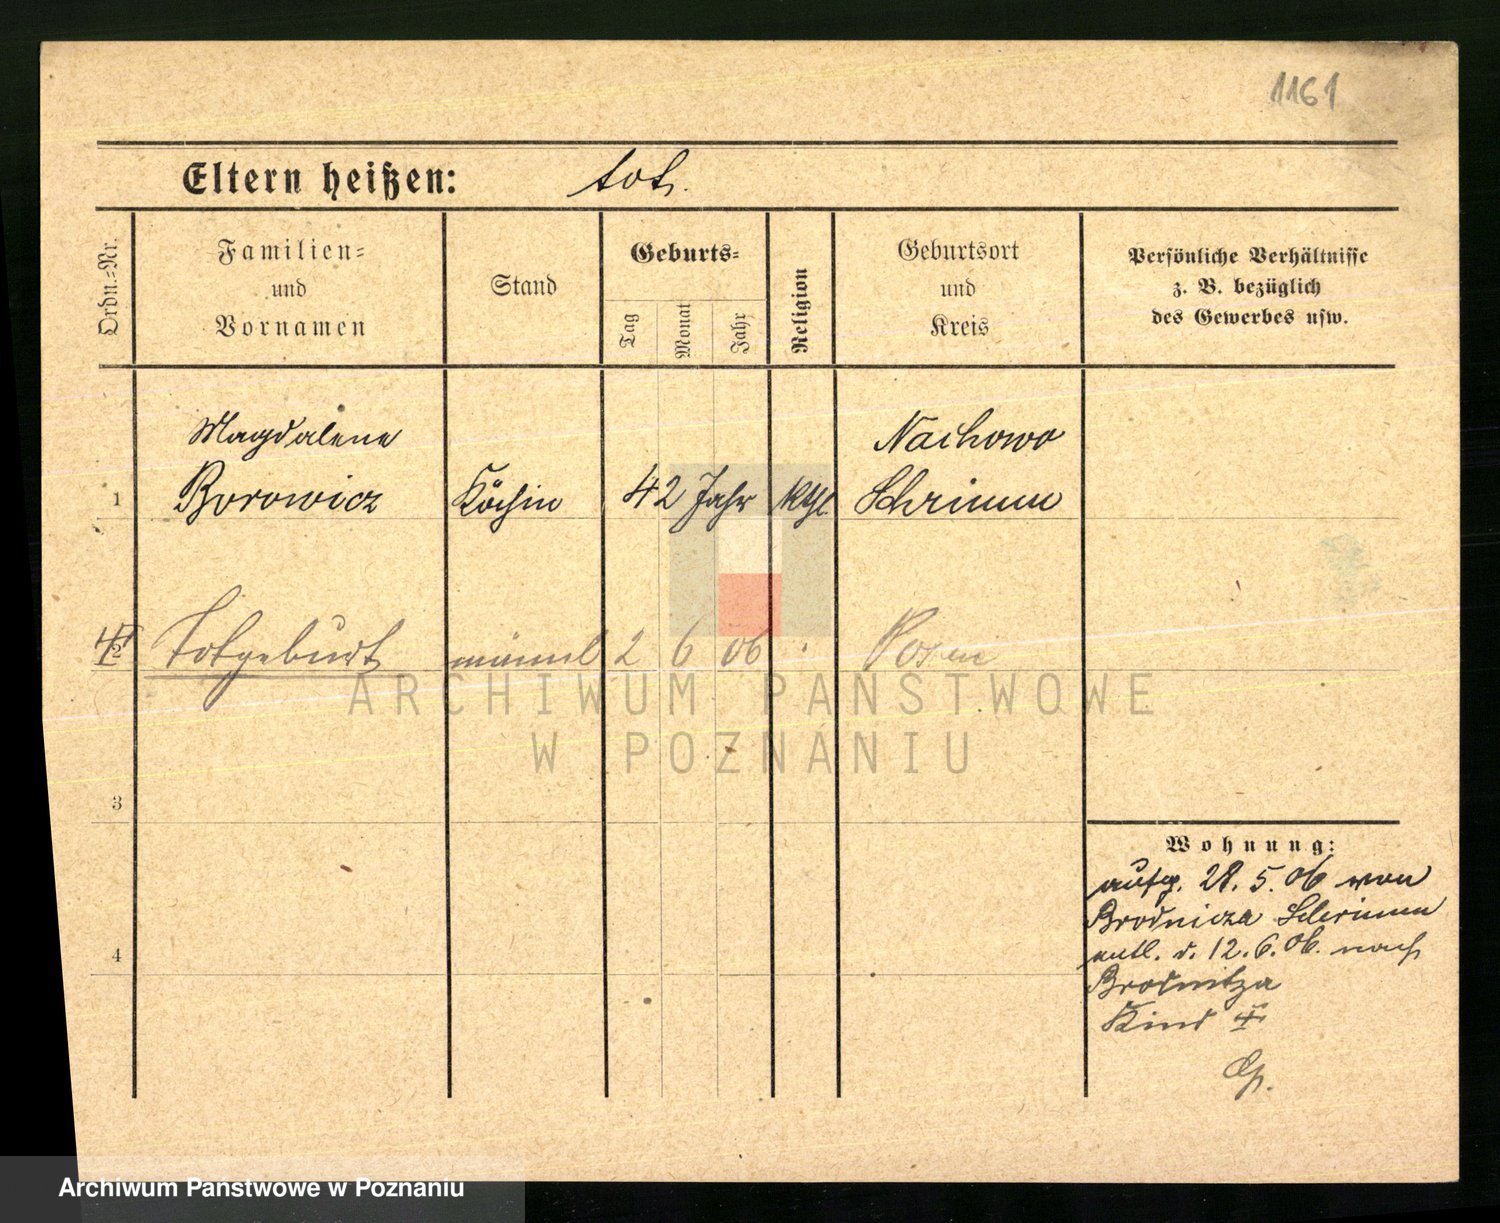 1161
Eltern heißen: tot.
Ordn.-Nr.
Familien-
und
Vornamen
Stand
Geburts-
Tag
Monat
Jahr
Religion
Geburtsort
und
Kreis
Persönliche Verhältnisse
z. B. bezüglich
des Gewerbes usw.
Magdalene
Nachowo
1 Borowicz Köchin 42 Jahr kthl. Schrimm
2 Totgeburt männl 2 6 06 Posen
ARCHIWUM PAŃSTWOWE
W POZNANIU
3
Wohnung:
aufg. 28. 5. 06 von
Brodnicza Schrimm
entl. d. 12. 6. 06. nach
Brodnitza
Kind
4
Archiwum Państwowe w Poznaniu